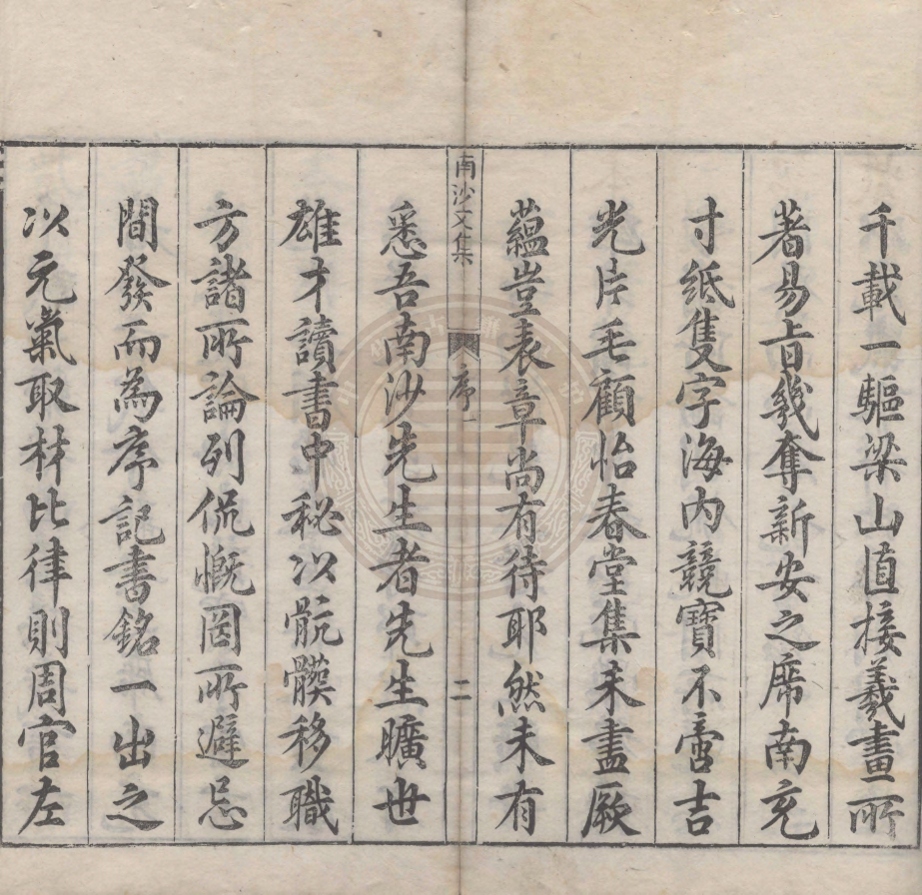 千載一驅梁山直接羲畫所
著易旨幾奪新安之席南充
寸紙隻字海內競寶不啻吉
光片毛顧怡春堂集未盡厥
蘊豈表章尚有待耶然未有
南沙文集 序一 二
悉吾南沙先生者先生曠世
雄才讀書中秘以骯髒移職
方諸所論列侃慨罔所避忌
間發而為序記書銘一出之
以元氣取材比律則周官左